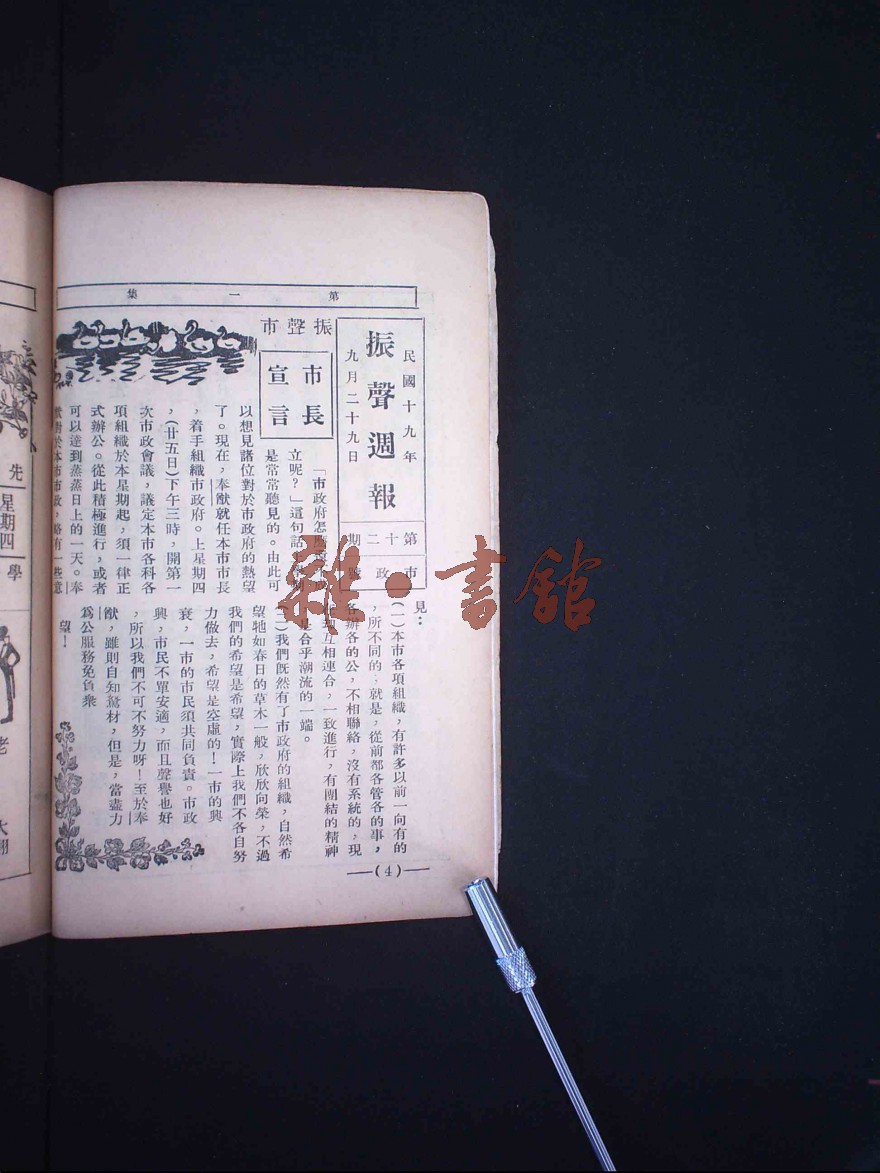 第一集
民國十九年
九月二十九日
振聲週報
第十二期
市政號
振聲市
市長
宣言
「市政府怎
立呢?」這句話
是常常聽見的。由此可
以想見諸位對於市政府的熱望
了。現在,奉猷就任本市市長
,着手組織市政府。上星期四
,(廿五日)下午三時,開第一
次市政會議,議定本市各科各
項組織於本星期起,須一律正
式辦公。從此積極進行,或者
可以達到蒸蒸日上的一天。奉
猷對於本市市政,略有一些意
見:
(一)本市各項組織,有許多以前一向有的
,所不同的,就是,從前都各管各的事,
各辦各的公,不相聯絡,沒有系統的,現
互相連合,一致進行,有團結的精神
是合乎潮流的一端。
(二)我們既然有了市政府的組織,自然希
望牠如春日的草木一般,欣欣向榮,不過
我們的希望是希望,實際上我們不各自努
力做去,希望是空虛的!一市的興
衰,一市的市民須共同負責。市政
興,市民不單安適,而且聲譽也好
,所以我們不可不努力呀!至於奉
猷,雖則自知駑材,但是,當盡力
爲公服務免負衆
望!
(4)
先
星期四
學
老
大
雜•書館